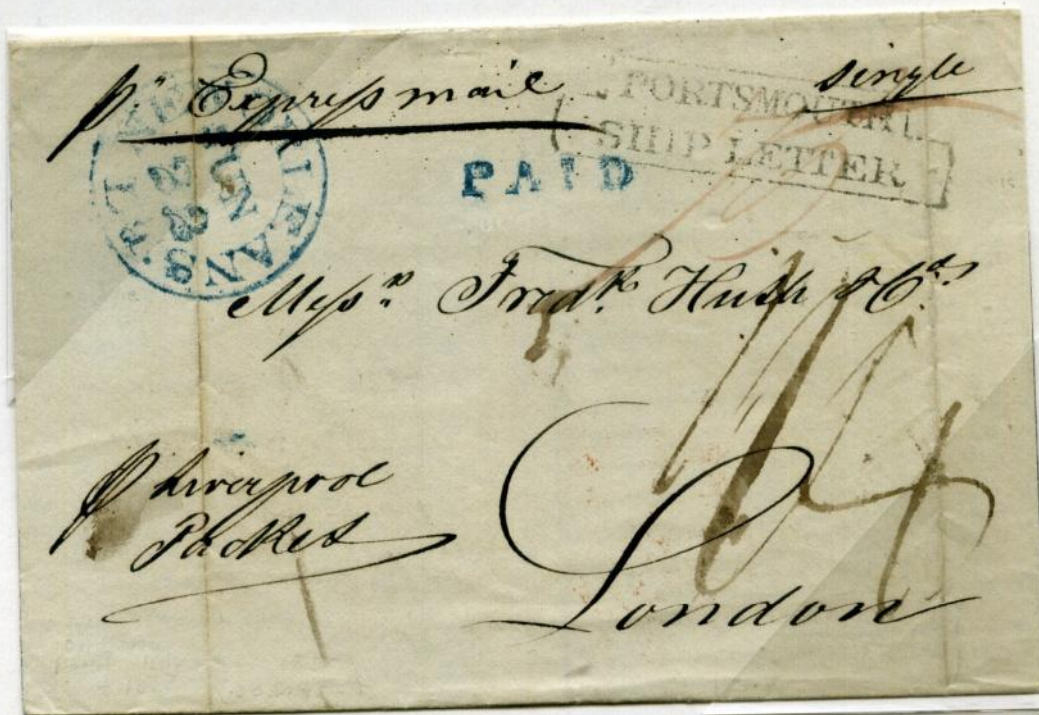 pr Express mail
single
NEW ORLEANS
PORTSMOUTH
SHIP LETTER
PAID
Messrs Fredk Huth & Co.
pr Liverpool
Packet
London